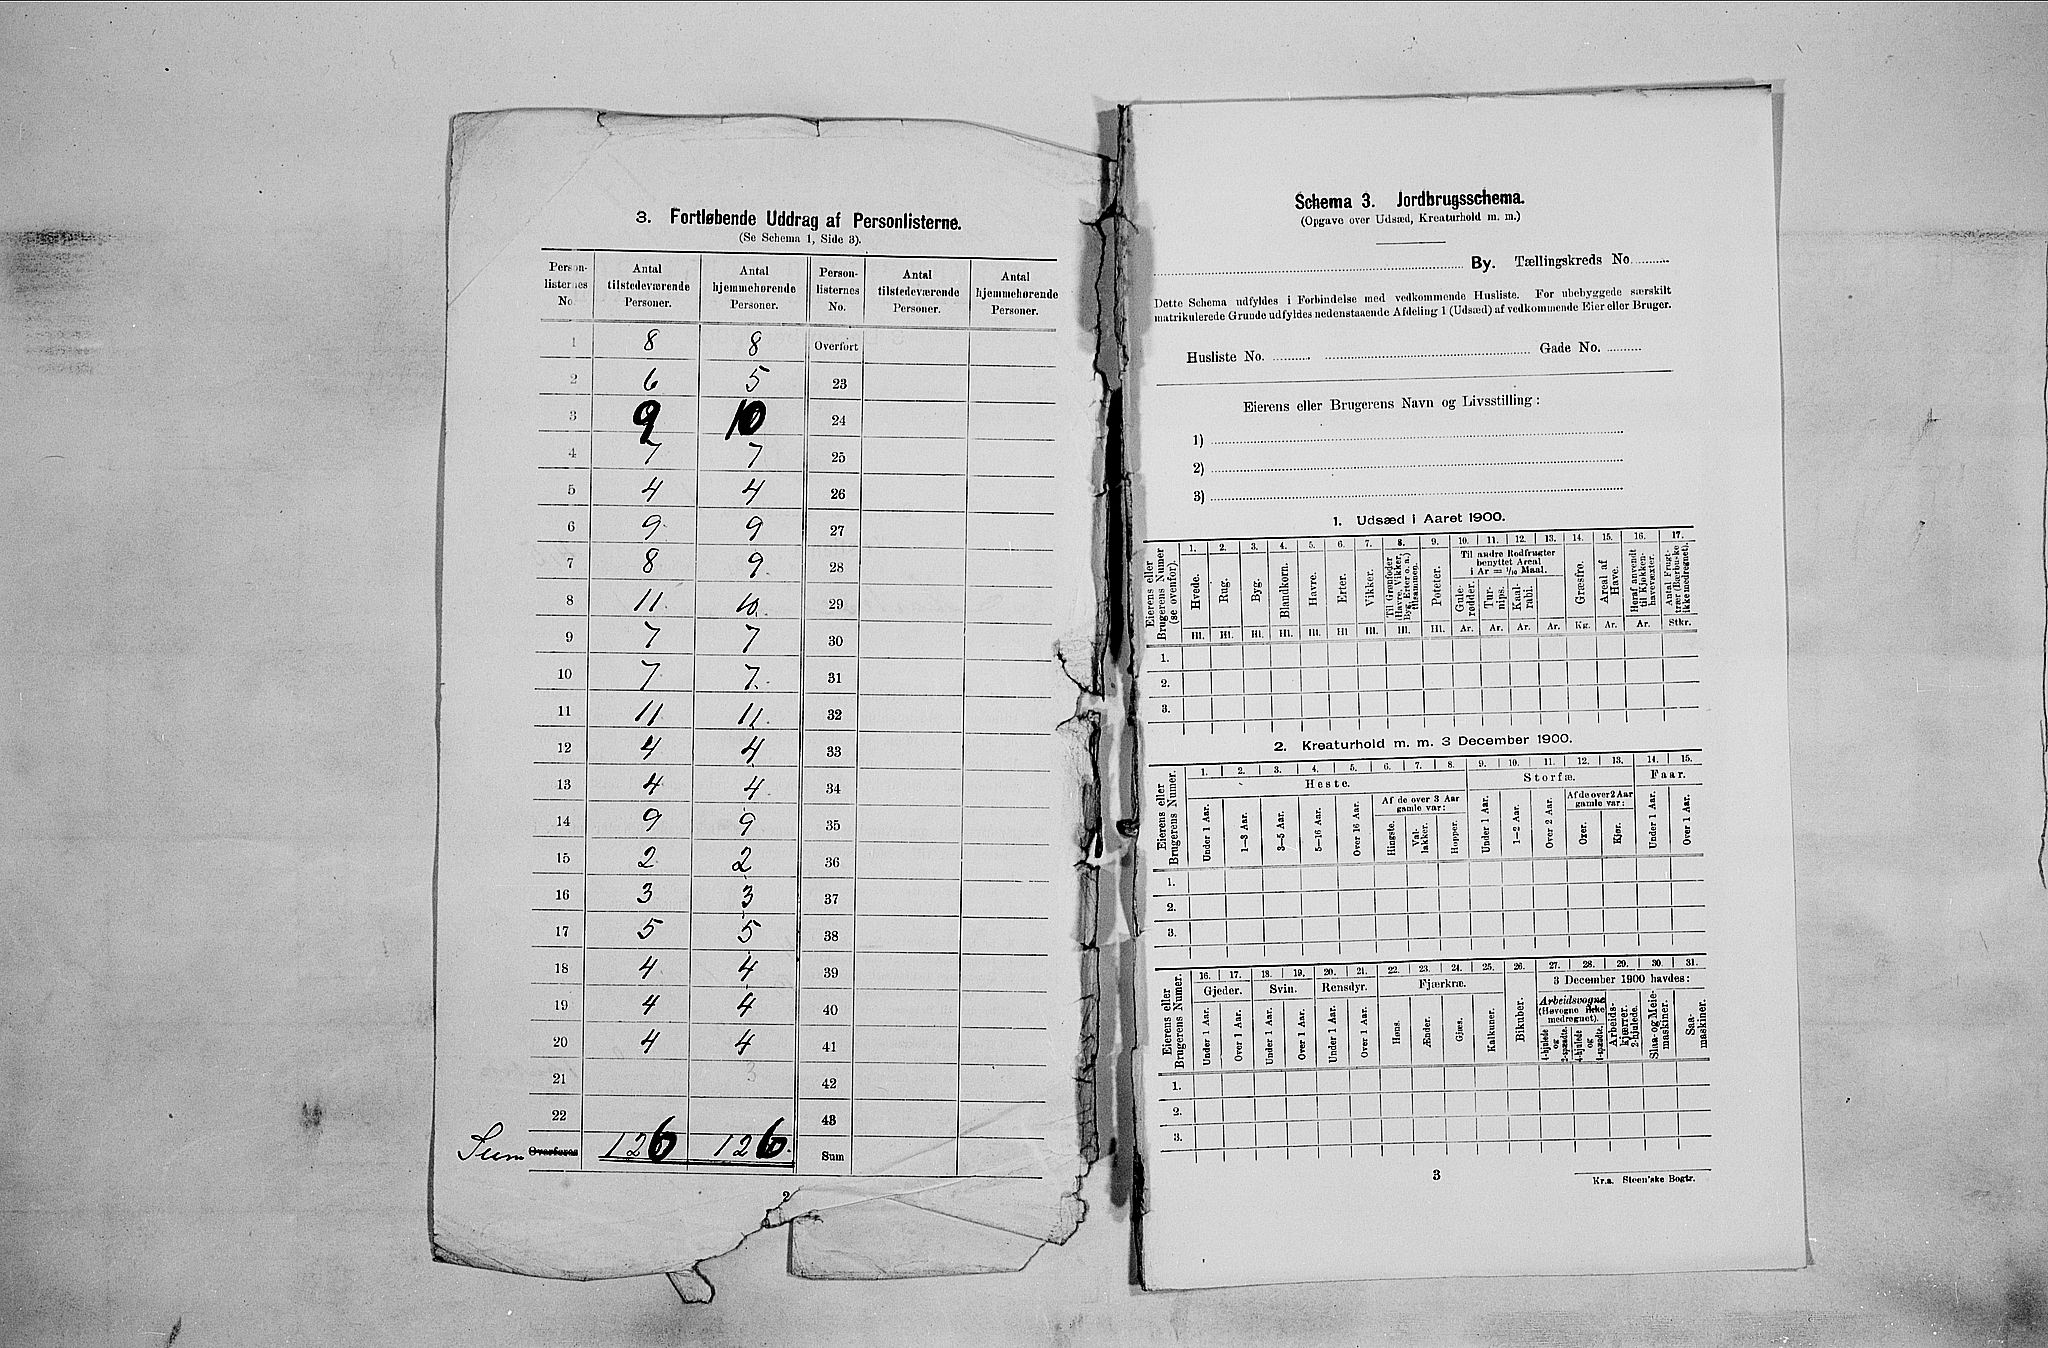 3. Fortløbende Uddrag af Personlisterne.
(Se Schema 1, Side 3).
Person-listernes No. Antal tilstedeværende Personer. Antal hjemmehørende Personer. Person-listernes No. Antal tilstedeværende Personer. Antal hjemmehørende Personer.
1 8 8 Overført
2 6 5 23
3 9 10 24
4 7 7 25
5 4 4 26
6 9 9 27
7 8 9 28
8 11 10 29
9 7 7 30
10 7 7 31
11 11 11 32
12 4 4 33
13 4 4 34
14 9 9 35
15 2 2 36
16 3 3 37
17 5 5 38
18 4 4 39
19 4 4 40
20 4 4 41
21 3 42
22 43
Sum Overføres 126 126 Sum
2
Schema 3. Jordbrugsschema.
(Opgave over Udsæd, Kreaturhold m. m.)
By. Tællingskreds No
Dette Schema udfyldes i Forbindelse med vedkommende Husliste. For ubebyggede særskilt
matrikulerede Grunde udfyldes nedenstaaende Afdeling 1 (Udsæd) af vedkommende Eier eller Bruger.
Husliste No. Gade No.
Eierens eller Brugerens Navn og Livsstilling:
1)
2)
3)
1. Udsæd i Aaret 1900.
Eierens eller Brugerens Numer (se ovenfor).
1. 2. 3. 4. 5. 6. 7. 8. 9. 10. 11. 12. 13. 14. 15. 16. 17.
Hvede. Rug. Byg. Blandkorn. Havre. Erter. Vikker. Til Grønfoder (Havre, Vikker, Byg, Erter o. a.) tilsammen. Poteter.
Til andre Rodfrugter benyttet Areal i Ar = 1/10 Maal.
Gule-rødder. Tur-nips. Kaal-rabi. Græsfrø. Areal af Have. Heraf anvendt til Kjøkken-havevæxter. Antal Frugt-trær (Bærbuske ikke medregnet).
Hl. Hl. Hl. Hl. Hl. Hl. Hl. Hl. Hl. Ar. Ar. Ar. Ar. Kg. Ar. Ar. Stkr.
1.
2.
3.
2. Kreaturhold m. m. 3 December 1900.
Eierens eller Brugerens Numer.
1. 2. 3. 4. 5. 6. 7. 8. 9. 10. 11. 12. 13. 14. 15.
Heste. Storfæ. Faar.
Under 1 Aar. 1–3 Aar. 3–5 Aar. 5–16 Aar. Over 16 Aar. Af de over 3 Aar gamle var: Hingste. Val-lakker. Hopper. Under 1 Aar. 1–2 Aar. Over 2 Aar. Af de over 2 Aar gamle var: Oxer. Kjør. Under 1 Aar. Over 1 Aar.
1.
2.
3.
Eierens eller Brugerens Numer.
16. 17. 18. 19. 20. 21. 22. 23. 24. 25. 26. 27. 28. 29. 30. 31.
Gjeder. Svin. Rensdyr. Fjærkræ. Bikuber. 3 December 1900 havdes:
Under 1 Aar. Over 1 Aar. Under 1 Aar. Over 1 Aar. Under 1 Aar. Over 1 Aar. Høns. Ænder. Gjæs. Kalkuner.
Arbeidsvogne (Høvogne ikke medregnet). 4-hjulede og 2-spændte. 4-hjulede og 1-spændte. Arbeids-kjærrer. 2-hjulede. Slaa- og Meie-maskiner. Saa-maskiner.
1.
2.
3.
3
Kr.a. Steen'ske Bogtr.